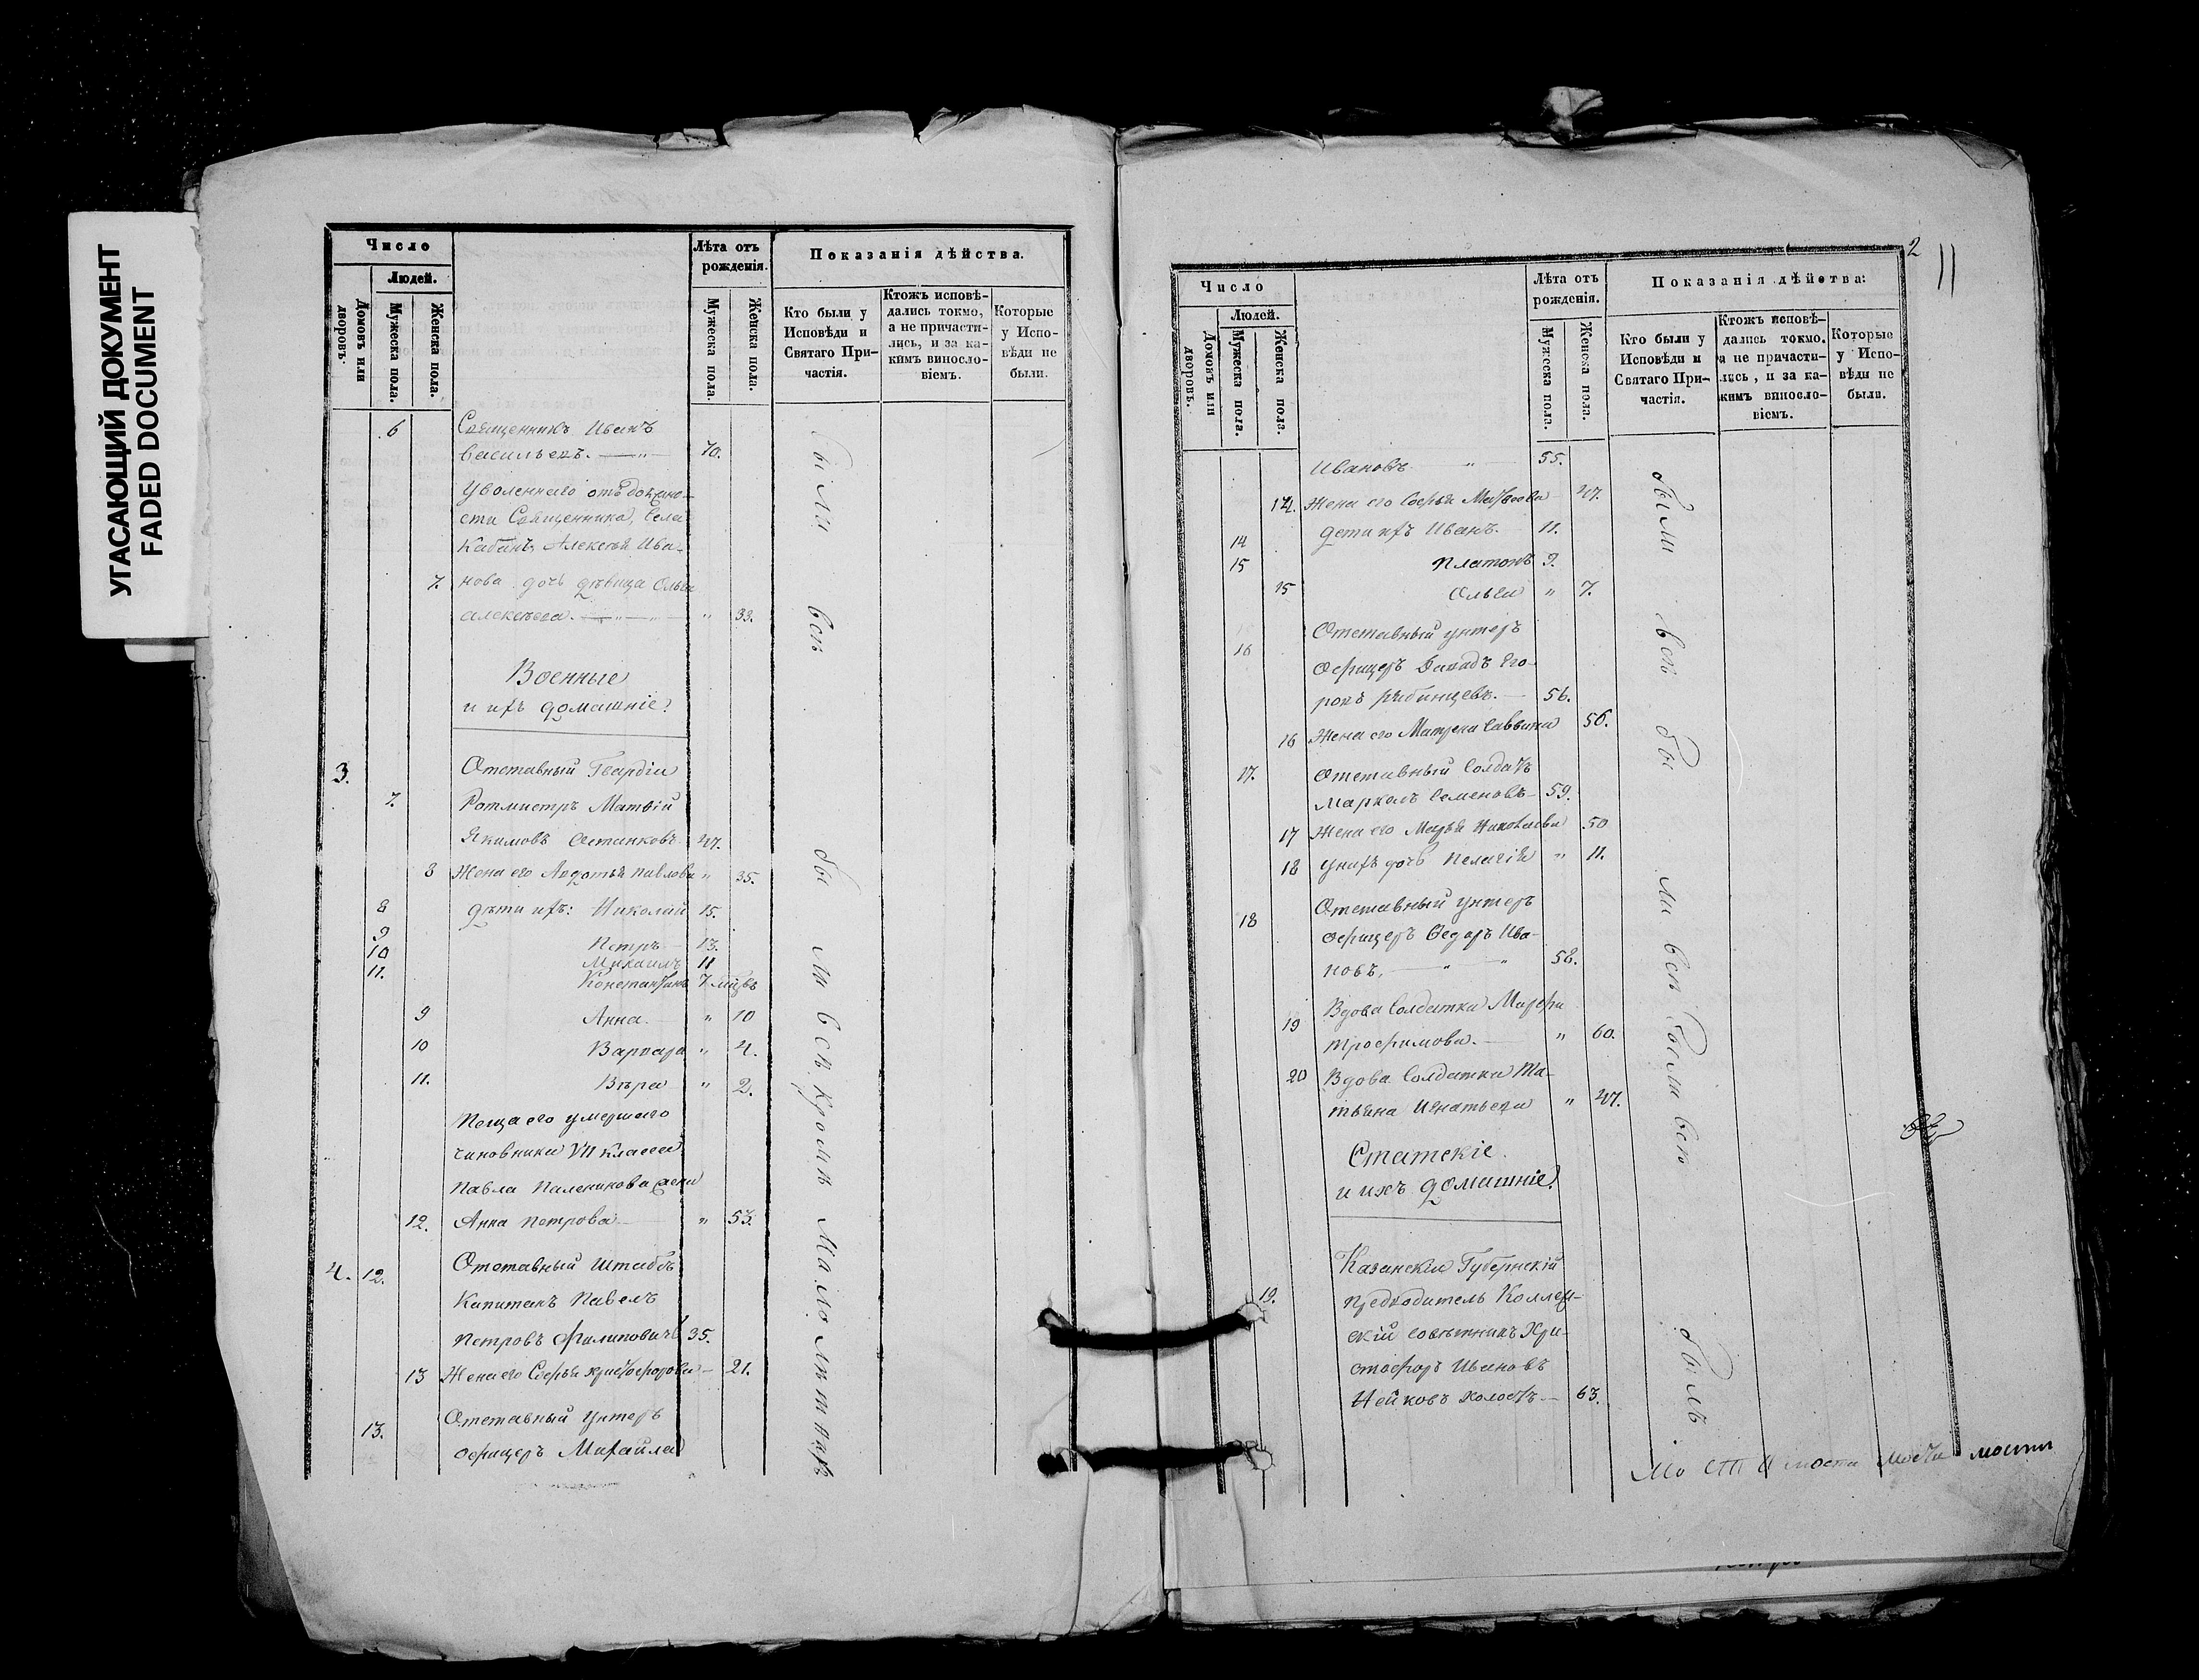 УГАСАЮЩИЙ ДОКУМЕНТ
FADED DOCUMENT
Число
Людей.
Домовъ или дворовъ.
Мужеска пола.
Женска пола.
Лѣта отъ рожденія.
Мужеска пола.
Женска пола.
Показанія дѣйства.
Кто были у Исповѣди и Святаго Причастія.
Ктожъ исповѣдались токмо, а не причастились, и за какимъ винословіемъ.
Которые у Исповѣди не были.
6 Священникъ Иванъ
Васильевъ. — " — 70.
Уволеннаго отъ должно-
сти Священника, Села
Кабанъ, Алексѣя Ива-
7. нова дочь дѣвица Ольга
Алексѣева. — " — " 33.
Военные
и ихъ домашніе.
3. Отставный Гвардіи
7. Ротмистръ Матвій
Якимовъ Остинковъ 47.
8 Жена его Авдотья Павлова " 35.
8 дѣти ихъ: Николай 15.
9 Петръ — 13.
10 Михаилъ 11
11. Константинъ 7
9 Анна. — " 10
10 Варвара " 4.
11. Вѣра " 2.
Теща его умершаго
чиновника VII класса
Павла жена
12. Анна Петрова — " 53.
4. 12. Отставный Штабсъ
Капитанъ Павелъ
Петровъ Филиповичъ 35.
13 Жена его Софья Христофорова — 21.
13. Отставный Унтеръ
офицеръ Михайла
были всѣ
были всѣ кромѣ малолѣтнихъ
2
11
Число
Людей.
Домовъ или дворовъ.
Мужеска пола.
Женска пола.
Лѣта отъ рожденія.
Мужеска пола.
Женска пола.
Показанія дѣйства:
Кто были у Исповѣди и Святаго Причастія.
Ктожъ исповѣдались токмо, а не причастились, и за какимъ винословіемъ.
Которые у Исповѣди не были.
Ивановъ " — 55.
14. Жена его Софья Матвѣева 47.
14 дети ихъ Иванъ. 11.
15 Платонъ 9.
15 Ольга " 7.
16 Отставный унтеръ
офицеръ Давидъ Его-
ровъ Рябинцевъ. — 56.
16 Жена его Матрена Саввина 56.
17. Отставный Солдатъ
Маркелъ Семеновъ — 59.
17 Жена его Марья Николаева 50
18 у нихъ дочь Пелагія " 11.
18 Отставный унтеръ
офицеръ Ѳедоръ Ива-
новъ, — " — " 58.
19 Вдова Солдатка Марфа
Трофимова. — " 60.
20 Вдова Солдатка Та-
тьяна Игнатьева " 47.
Статскіе
и ихъ домашніе.
19. Казанскій Губернскій
предводитель Коллеж-
скій совѣтникъ Хри-
стофоръ Ивановъ
Нейковъ холостъ — 63.
были всѣ были всѣ были всѣ
былъ
мости мости мости